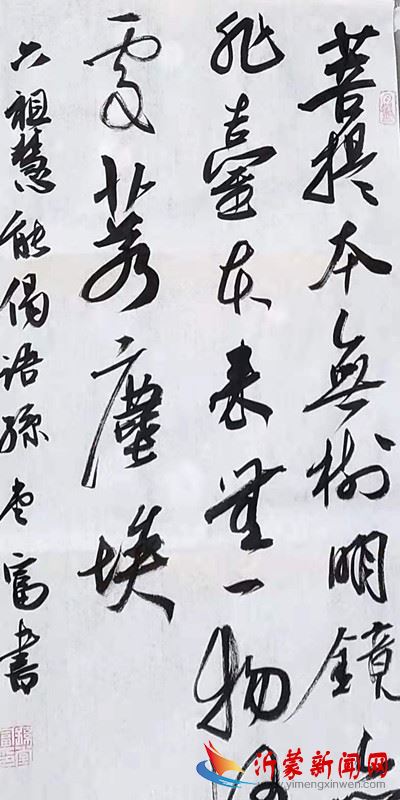 菩提本無樹明鏡亦
非臺本來無一物何
處惹塵埃
六祖慧能偈語孫士富書
沂蒙新闻网
www.yimengxinwen.com